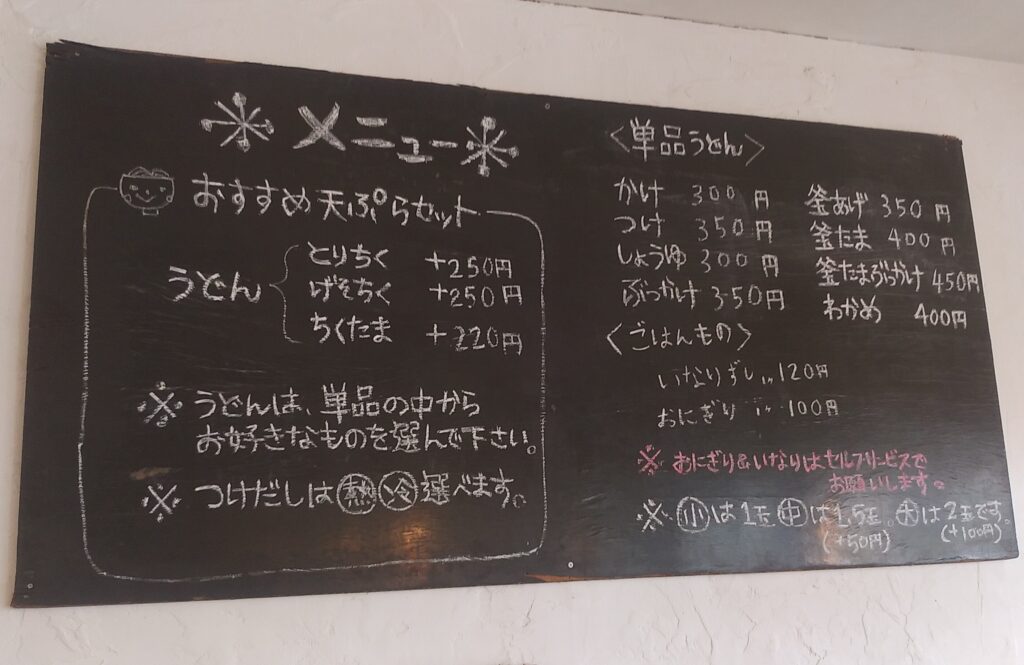 メニュー
おすすめ天ぷらセット
うどん
とりちく +250円
げそちく +250円
ちくたま +220円
※ うどんは、単品の中から
お好きなものを選んで下さい。
※ つけだしは㊀熱 冷 選べます。
<単品うどん>
かけ 300円
つけ 350円
しょうゆ 300円
ぶっかけ 350円
釜あげ 350円
釜たま 400円
釜たまぶっかけ 450円
わかめ 400円
<ごはんもの>
いなりずし 120円
おにぎり 100円
※ おにぎり&いなりはセルフサービスで
お願いします。
※ 小は1玉 中は1.5玉。大は2玉です。
(+50円) (+100円)